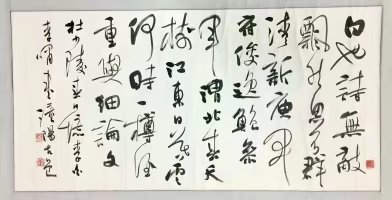 白也詩無敵
飄然思不群
清新庾開
府俊逸鮑參
軍渭北春天
樹江東日暮雲
何時一樽酒
重與細論文
杜少陵春日憶李白